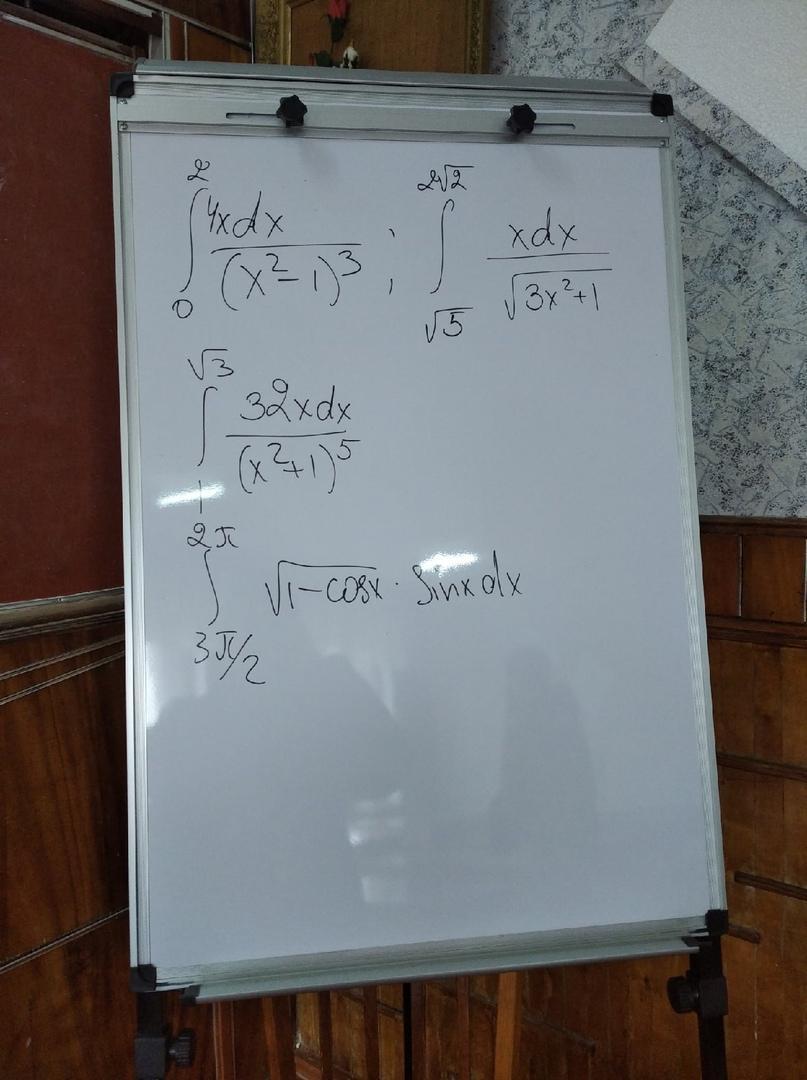 ∫₀² 4xdx/(x²-1)³ ; ∫_{√5}^{2√2} xdx/√(3x²+1)
∫₁^{√3} 32xdx/(x²+1)⁵
∫_{3π/2}^{2π} √(1-cosx) · sinxdx